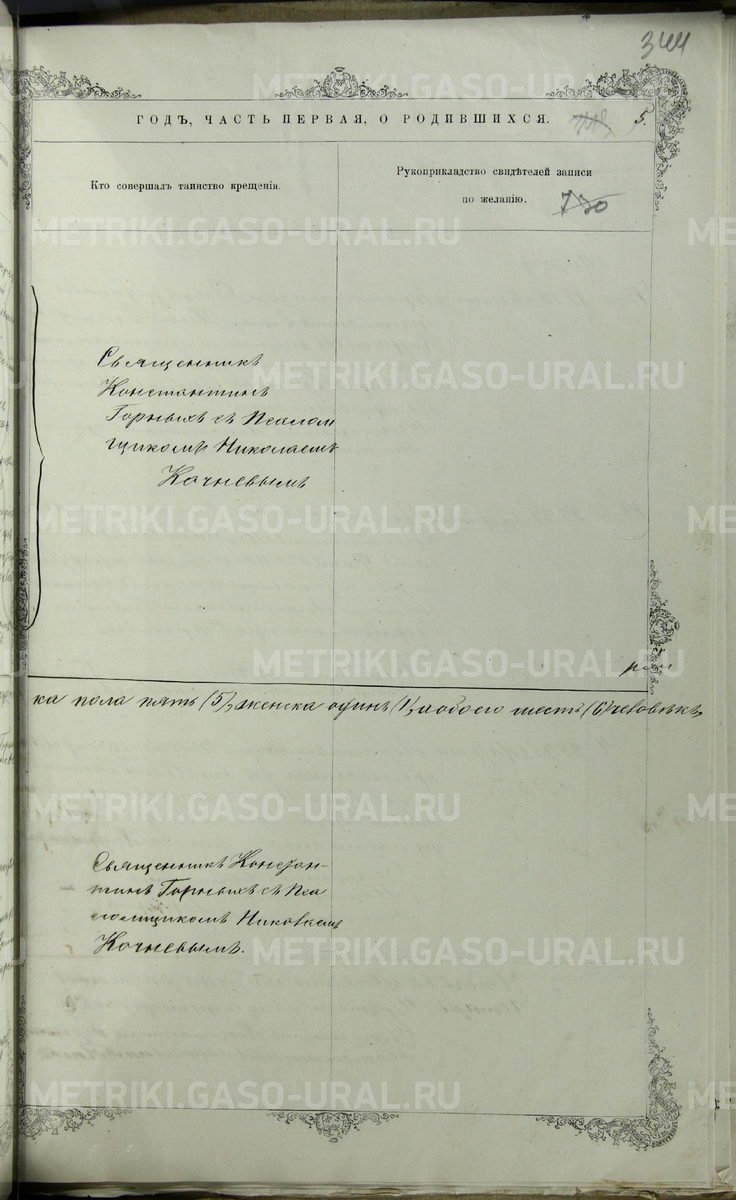 344
ГОДЪ, ЧАСТЬ ПЕРВАЯ, О РОДИВШИХСЯ.
5.
Кто совершалъ таинство крещенія.
Рукоприкладство свидѣтелей записи
по желанію.
730
Священникъ
Константинъ
Горныхъ съ Псалом
щикомъ Николаемъ
Кочневымъ
ка пола пять (5), женска одинъ (1), и обоего шесть (6) человѣкъ,
Священникъ Констан-
тинъ Горныхъ съ Пса
ломщикомъ Николаемъ
Кочневымъ.
METRIKI.GASO-URAL.RU